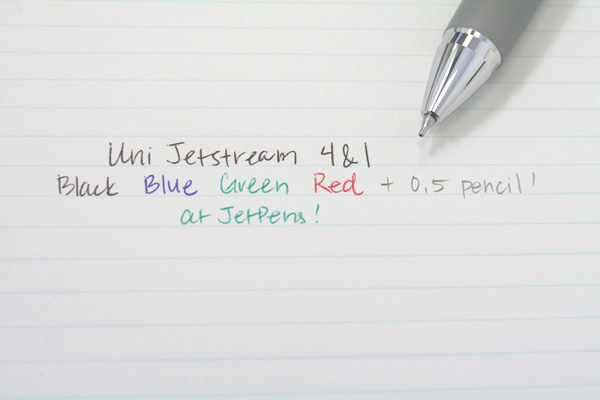 Uni Jetstream 4&1
Black Blue Green Red + 0.5 pencil!
at JetPens!